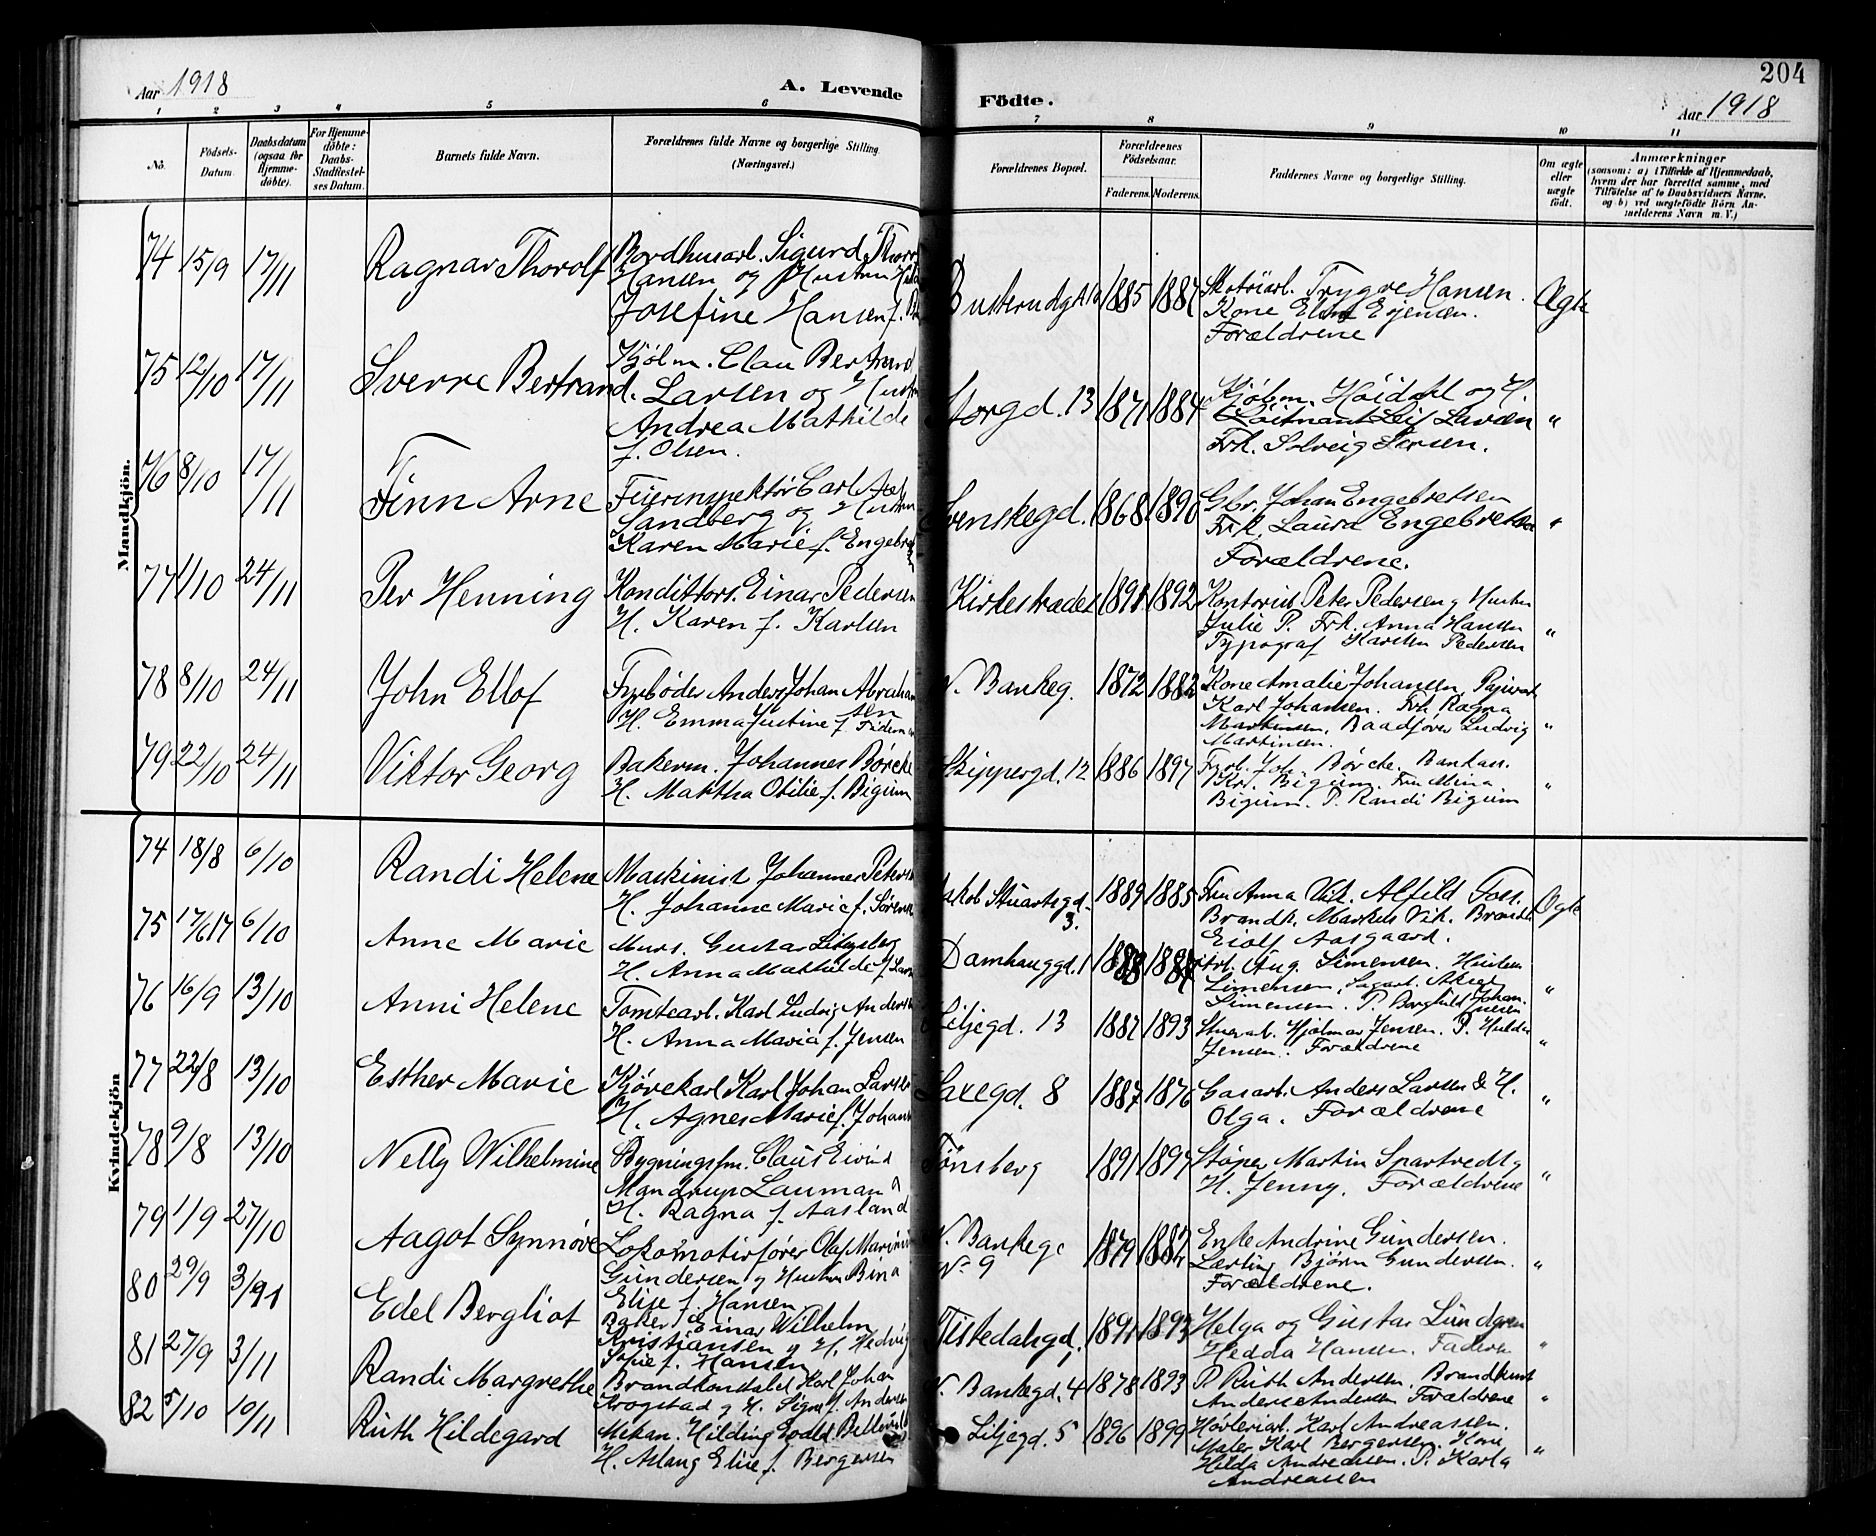 Aar 1918
A. Levende
Födte.
204
Aar 1918
1 2 3 4 5 6 7 8 9 10 11
No.
Födsels-Datum.
Daabsdatum (ogsaa for Hjemme-döbte).
For Hjemme-döbte: Daabs-Stadfæstel-ses Datum.
Barnets fulde Navn.
Forældrenes fulde Navne og borgerlige Stilling (Næringsvei.)
Forældrenes Bopæl.
Forældrenes Födselsaar.
Faderens. Moderens.
Faddernes Navne og borgerlige Stilling.
Om ægte eller uægte födt.
Anmærkninger
(saasom: a) i Tilfælde af Hjemmedaab,
hvem der har forrettet samme, med
Tilföielse af to Daabsvidners Navne,
og b) ved uægtefödte Börn An-
melderens Navn m. V.)
Mandkjön.
74 15/9 17/11 Ragnar Thorolf
Bordhusarb. Sigurd
Hansen og Hustru
Josefine Hansen f.
1885 1887
Trygve Hansen.
Kone
Forældrene
Ægte
75 12/10 17/11 Sverre Bertrand.
Kjøbm. Clau Bertrand
Larsen og Hustru
Andrea Mathilde
f. Olsen.
Storgd. 13 1871 1884
Kjøbm. Høidahl og H.
Løitnant Leif Larsen
Frk. Solveig Larsen.
"
76 8/10 17/11 Finn Arne
Feierinspektör Carl Axel
Sandberg og Hustru
Karen Marie f.
Svenskegd. 1868 1890
Gbr. Johan Engebretsen
Frk. Laura Engebretsen
Forældrene.
"
77 1/10 24/11 Per Henning
Konditors. Einar Pedersen
H. Karen f. Karlsen
1891 1892
Kontorist Peter Pedersen og Hustru
Julie P. Frk. Anna Hansen
Typograf Karsten Pedersen
"
78 8/10 24/11 John Ellof
Fyrbøder Anders Johan
H. Emma Justine f.
N. Bankeg. 1872 1882
Kone Amalie Johansen,
Karl Johansen. Frk. Ragna
Martinsen, Baadfører Ludvig
Martinsen.
"
79 22/10 24/11 Viktor Georg
Bakerm. Johannes Børcke
H. Martha Otilie f. Bigum
Skippergd. 12 1886 1897
Børcke.
Bigum. Fru Mina
Bigum. P. Randi Bigum
"
Kvindekjön
74 18/8 6/10 Randi Helene
Maskinist Johannes
H. Johanne Marie f.
Jakob Stuartsgd. 3. 1889 1885
Fru Anna Vik. Alfild Foss.
Brandk. Markus Vik.
Eiolf Aasgaard.
Ægte
75 17/6 17 6/10 Anne Marie
Murs. Gustav
H. Anna Mathilde f.
Damhauggd. 1
Arb. Aug. Simensen. Hustru
Simensen, Sagarb. Aksel
Simensen. P. Borghild
"
76 16/9 13/10 Anni Helene
Tomtearb. Karl Ludvig
H. Anna Maria f. Jensen
Liljegd. 13 1887 1893
Hjalmar Jensen. P. Hulda
Jensen. Forældrene
"
77 22/8 13/10 Esther Marie
Kjørekarl Karl Johan
H. Agnes Marie f.
8 1887 1876
Gasarb. Anders Larsen & H.
Olga. Forældrene
"
78 9/8 13/10 Nelly Wilhelmine
Bygningsfm. Claus Eivind
Mandrup Lauman og
H. Ragna f. Aasland
Tønsberg 1891 1897
Støper Martin
H. Jenny. Forældrene
"
79 1/9 27/10 Aagot Synnøve
Lokomotivfører Olaf
Gundersen og Hustru Bina
Elise f. Hansen
N. Bankegd N. 9 1879 1882
Enke Andrine Gundersen.
Lærling Bjørn Gundersen.
Forældrene.
"
80 29/9 Edel Bergliot
Baker Einar Wilhelm
Kristiansen og H. Hedvig
f. Hansen
Tistedalsgd. 1891 1893
Helga og Gustav Lundgren
Hedda Hansen. Faderen
"
81 27/9 3/11 Randi Margrethe
Brandkonstabel Karl Johan
og H. Signe f.
N. Bankegd. 4 1878 1893
P. Ruth Andersen.
Forældrene
"
82 5/10 10/11 Ruth Hildegard
Mekan. Hilding
H. Aslaug Elise f. Bergersen
Liljegd. 5 1896 1899
Høvleriarb. Karl Andreassen.
Maler Karl Bergersen. Kone
Hilda Andreassen. P. Karla
Andreassen
"